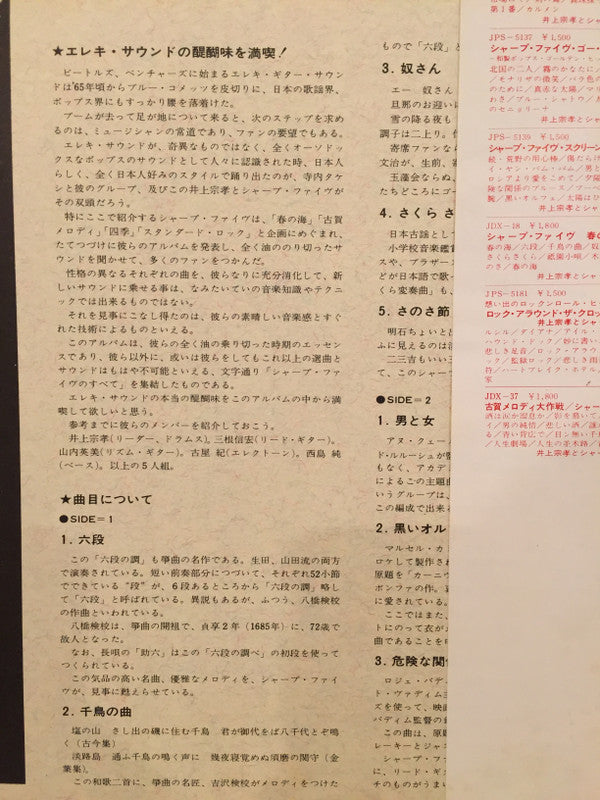 ★エレキ・サウンドの醍醐味を満喫!
ビートルズ、ベンチャーズに始まるエレキ・ギター・サウン
ドは'65年頃からブルー・コメッツを皮切りに、日本の歌謡界、
ポップス界にもすっかり腰を落着けた。
ブームが去って足が地について来ると、次のステップを求め
るのは、ミュージシャンの常道であり、ファンの要望でもある。
エレキ・サウンドが、奇異なものではなく、全くオーソドッ
クスなポップスのサウンドとして人々に認識された時、日本人
らしく、全く日本人好みのスタイルで踊り出たのが、寺内タケ
シと彼のグループ、及びこの井上宗孝とシャープ・ファイヴが
その双頭だろう。
特にここで紹介するシャープ・ファイヴは、「春の海」「古賀
メロディ」「四季」「スタンダード・ロック」と企画にめぐまれ、
たてつづけに彼らのアルバムを発表し、全く油ののり切ったサ
ウンドを聞かせて、多くのファンをつかんだ。
性格の異なるそれぞれの曲を、彼らなりに充分消化して、新
しいサウンドに乗せる事は、なみたいていの音楽知識やテクニ
ックでは出来るものではない。
それを見事にこなし得たのは、彼らの素晴しい音楽感とすぐ
れた技術によるものといえる。
このアルバムは、彼らの全く油の乗り切った時期のエッセン
スであり、彼ら以外に、或いは彼らをしてもこれ以上の選曲と
サウンドはもはや不可能といえる、文字通り「シャープ・ファ
イヴのすべて」を集結したものである。
エレキ・サウンドの本当の醍醐味をこのアルバムの中から満
喫して欲しいと思う。
参考までに彼らのメンバーを紹介しておこう。
井上宗孝(リーダー、ドラムス)。三根信宏(リード・ギター)。
山内英美(リズム・ギター)。古屋 紀(エレクトーン)。西島 純
(ベース)。以上の5人組。
★曲目について
●SIDE=1
1. 六段
この「六段の調」も箏曲の名作である。生田、山田流の両方
で演奏されている。短い前奏部分につづいて、それぞれ52小節
でできている“段”が、6段あるところから「六段の調」略し
て「六段」と呼ばれている。異説もあるが、ふつう、八橋検校
の作曲といわれている。
八橋検校は、箏曲の開祖で、貞享2年(1685年)に、72歳で
故人となった。
なお、長唄の「助六」はこの「六段の調べ」の初段を使って
つくられている。
この気品の高い名曲、優雅なメロディを、シャープ・ファイ
ヴが、見事に甦えらせている。
2. 千鳥の曲
塩の山 さし出の磯に住む千鳥 君が御代をば八千代とぞ鳴
く(古今集)
淡路島 通ふ千鳥の鳴く声に 幾夜寝覚めぬ須磨の関守(金
葉集)。
この和歌二首に、箏曲の名匠、吉沢検校がメロディをつけた
もので「六段」と
3. 奴さん
エー 奴さん
旦那のお迎いに
雪の降る夜も
調子は二上り。作
寄席ファンなら
文治が、生前、寄
玉藻会ならぬ、
たちどころにゴー
4. さくら さ
日本古謡として
小学校音楽鑑賞
スや、ブラザース
どが日本語で歌っ
くら変奏曲」も、
5. さのさ節
明石ちょいと
ふに見えるのは
二三吉もいい
て、このシャー
●SIDE=2
1. 男と女
アヌ・クェー
ド・ルルーシュが
もなく、アカデ
によるこの主題曲
いうグループは、
この編成で出来
2. 黒いオル
マルセル・カ
ロケして製作され
原題を「カーニヴ
ボンファの作。
に愛されている。
ここではまた、
トにのって衣が
曲であることを
3. 危険な関
ロジェ・バディ
ド・ヴァディム
ズを使って、映画
バディム監督の
この曲は、原題
レーキーとジャズ
シャープ・ファ
に、リード・ギ
チのものがうま
第1番／カルメン
井上宗孝とシャ
JPS-5137 ￥1,500
シャープ・ファイヴ・ゴー・
北国の二人／霧のかなたに／
／モナリザの微笑／バラ色の
のために／真赤な太陽／マリ
わさ／ブルー・シャトウ／
のセニョリーナ
井上宗孝とシャ
JPS-5139 ￥1,500
シャープ・ファイヴ・スクリーン
続・荒野の用心棒／傷だらけ
イ・ヤン・バム・バム／男と
ロシアより愛をこめて／夕陽
険な関係のブルース／ブーベ
腕／黒いオルフェ／太陽はひ
井上宗孝とシャ
JDX-18 ￥1,800
シャープ・ファイヴ 春の
春の海／六段／千鳥の曲／奴
さくらさくら／祇園小唄／木
のさ／春の海
井上宗孝とシャ
JPS-5181 ￥1,500
想い出のロックンロール・ヒ
ロック・アラウンド・ザ・クロッ
井上宗孝とシャ
ルシル／ダイアナ／アイル・
ハウンド・ドッグ／妙に書い
悲しき足音／ロック・アラウ
ック／監獄ロック／悲しき雨
符／ハートブレイク・ホテル
家
JDX-37 ￥1,800
古賀メロディ大作戦／シャー
酒は涙か溜息か／影を慕いて
イ／男の純情／悲しい酒／誰
る／青い背広で／目ン無い千
／人生劇場／人生の並木路／
井上宗孝とシャ